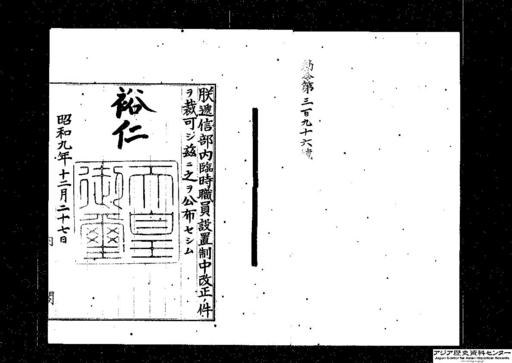 勅令第三百九十六號
朕遞信部内臨時職員設置制中改正ノ件
ヲ裁可シ玆ニ之ヲ公布セシム
裕仁
天皇御璽
昭和九年十二月二十七日
内閣
アジア歴史資料センター
Japan Center for Asian Historical Records